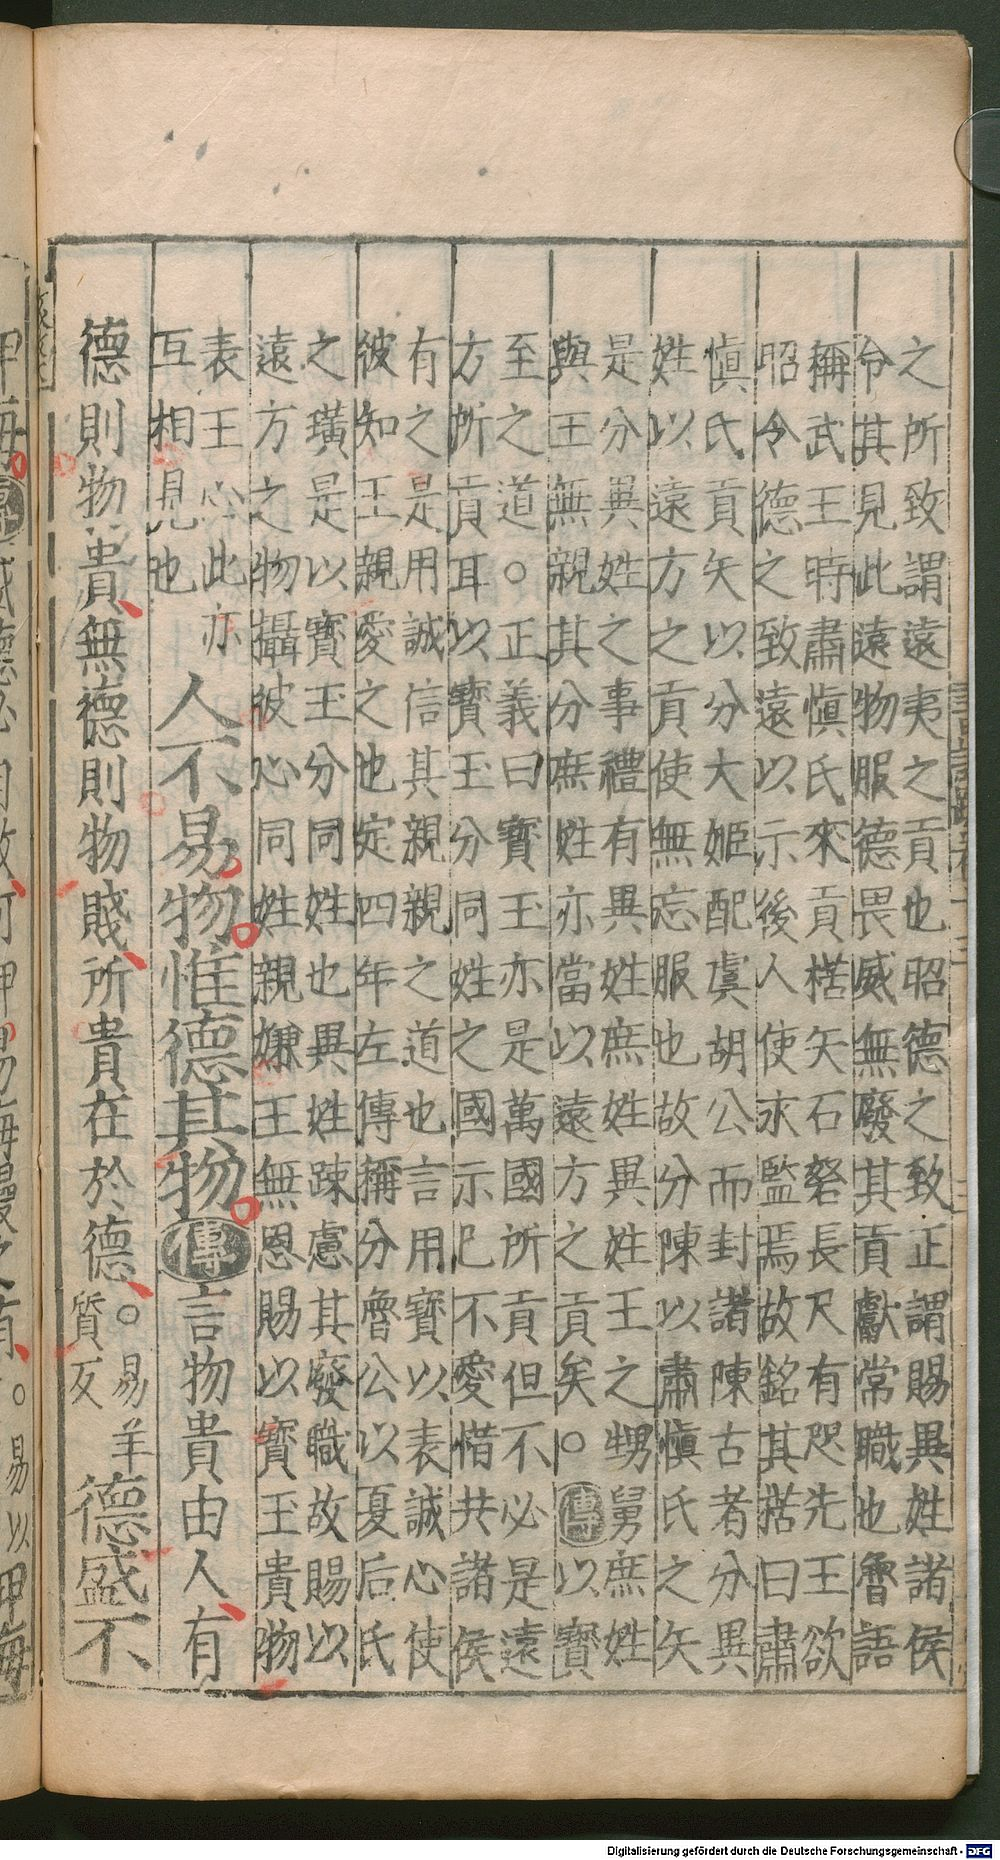 之所致謂遠夷之貢也昭德之致正謂賜異姓諸侯
令其見此遠物服德畏威無廢其貢獻常職也魯語
稱武王時肅慎氏來貢楛矢石砮長尺有咫先王欲
昭令德之致遠以示後人使永監焉故銘其楛曰肅
慎氏貢矢以分大姬配虞胡公而封諸陳古者分異
姓以遠方之貢使無忘服也故分陳以肅慎氏之矢
是分異姓之事禮有異姓庶姓異姓王之甥舅庶姓
與王無親其分庶姓亦當以遠方之貢矣○傳以寶
至之道○正義曰寶玉亦是萬國所貢但不必是遠
方所貢耳以寶玉分同姓之國示已不愛惜共諸侯
有之是用誠信其親親之道也言用寶以表誠心使
彼知王親愛之也定四年左傳稱分魯公以夏后氏
之璜是以寶玉分同姓也異姓疎慮其廢職故賜以
遠方之物攝彼心同姓親嫌王無恩賜以寶玉貴物
表王心此亦
互相見也
人不易物惟德其物傳言物貴由人有
德則物貴無德則物賤所貴在於德○易羊
質反
德盛不
Digitalisierung gefördert durch die Deutsche Forschungsgemeinschaft - DFG